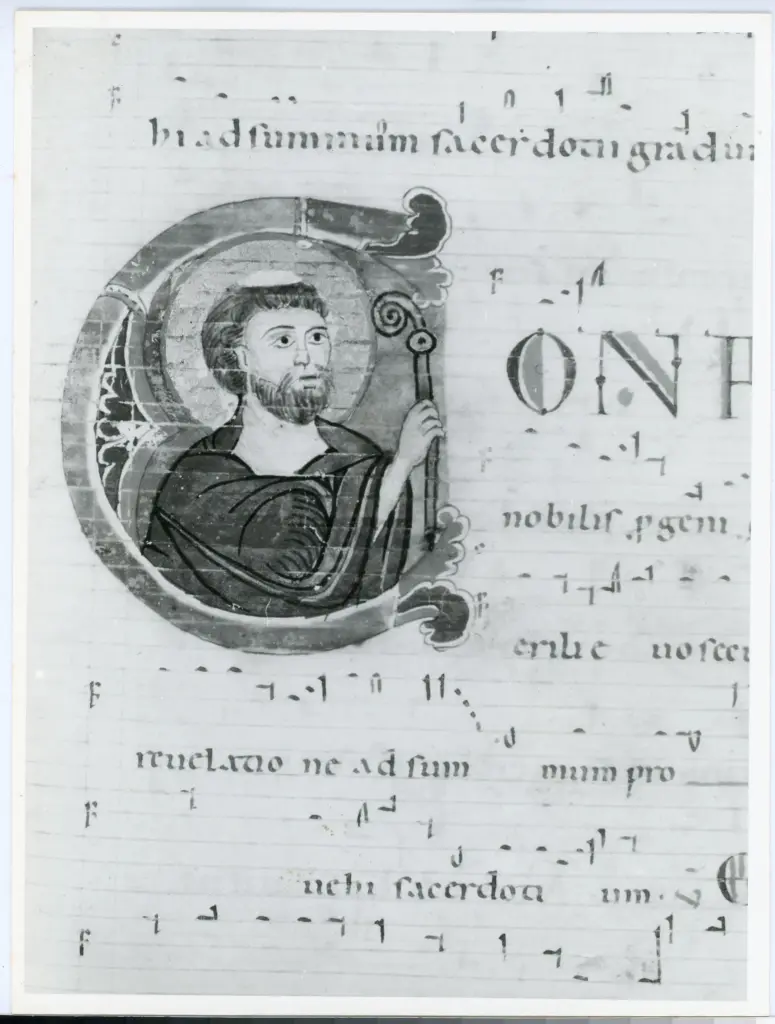 hi ad summum sacerdotii gradum
ONF
nobilis ꝓgeni
erilie nosceu
reuelatio ne ad sum mum pro
uehi sacerdoti um.